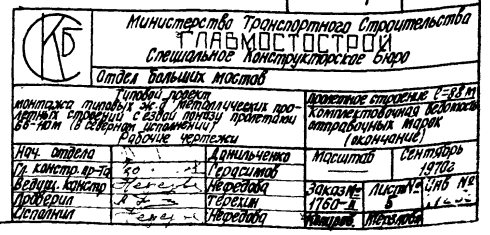 СКБ
Министерство Транспортного Строительства
ГЛАВМОСТОСТРОЙ
Специальное Конструкторское Бюро
Отдел больших мостов
Типовой проект
монтажа типовых ж.д. металлических про-
летных строений с ездой понизу пролетами
(в северном исполнении)
Рабочие чертежи
Пролетное строение ℓ=88м
Комплектовочная ведомость
отправочных марок
(окончание)
Нач. отдела Данильченко
Гл. констр. пр-та Герасимов
Ведущ. констр Нефедова
Проверил Терехин
Исполнил Нефедова
Масштаб Сентябрь
1970г
Заказ № Лист № Инв №
1760- 5